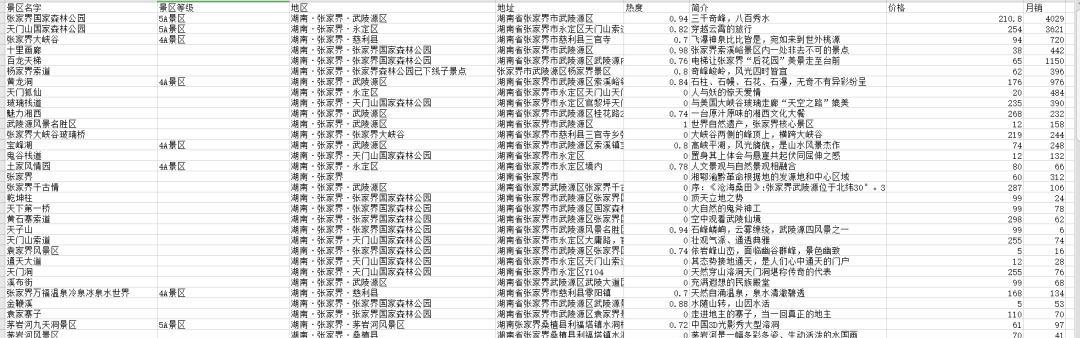 景区名字 景区等级 地区 地址 热度 简介 价格 月销
张家界国家森林公园 5A景区 湖南·张家界·武陵源区 湖南省张家界市武陵源区 0.94 三千奇峰，八百秀水 210.8 4029
天门山国家森林公园 5A景区 湖南·张家界·永定区 湖南省张家界市永定区天门山索 0.82 穿越云霄的旅行 254 3621
张家界大峡谷 4A景区 湖南·张家界·慈利县 湖南省张家界市慈利县三官寺 0.7 飞瀑神泉比比皆是，宛如来到世外桃源 94 720
十里画廊 湖南·张家界·张家界国家森林公园 湖南省张家界市武陵源区 0.98 张家界索溪峪景区内一处非去不可的景点 38 442
百龙天梯 湖南·张家界·张家界国家森林公园 湖南省张家界市武陵源区武陵源 0.76 电梯让张家界“后花园”美景走至台前 65 1150
杨家界索道 湖南·张家界·张家界森林公园已下线子景点 张家界市武陵源区杨家界景区 0.8 奇峰峻岭，风光四时皆宜 62 396
黄龙洞 4A景区 湖南·张家界·武陵源区 湖南省张家界市武陵源区索溪峪 0.84 石柱、石幔、石花、石瀑，无奇不有异彩纷呈 176 976
天门狐仙 湖南·张家界·永定区 湖南省张家界市永定区天门山 0 人与妖的惊天爱情 20 484
玻璃栈道 湖南·张家界·天门山国家森林公园 湖南省张家界市永定区官黎坪天门 0 与美国大峡谷玻璃走廊“天空之路”媲美 235 390
魅力湘西 湖南·张家界·武陵源区 湖南省张家界市武陵源区桂花路 0.74 一台原汁原味的湘西文化大餐 268 232
武陵源风景名胜区 湖南·张家界·武陵源区 湖南省张家界市武陵源区 1 世界自然遗产，张家界核心景区 12 158
张家界大峡谷玻璃桥 湖南·张家界·张家界大峡谷 湖南省张家界市慈利县三官寺乡 0 大峡谷两侧的峰顶上，横跨大峡谷 219 244
宝峰湖 4A景区 湖南·张家界·武陵源区 湖南省张家界市武陵源区索溪镇 0.8 高峡平湖，风光旖旎，是山水风景杰作 74 248
鬼谷栈道 湖南·张家界·天门山国家森林公园 湖南省张家界市永定区 0 置身其上体会与悬崖共起伏同屈伸之感 12 132
土家风情园 4A景区 湖南·张家界·永定区 湖南省张家界市永定区境内 0.78 人文景观与自然景观相融合 80 66
张家界 湖南·张家界 湖南省张家界市 0 湘鄂渝黔革命根据地的发源地和中心区域 60 312
张家界千古情 湖南·张家界·武陵源区 湖南省张家界市武陵源区张家界千古 0 序：《沧海桑田》:张家界武陵源位于北纬30°。3 287 106
乾坤柱 湖南·张家界·张家界国家森林公园 湖南省张家界市武陵源区张家界 0 顶天立地之势 99 24
天下第一桥 湖南·张家界·张家界国家森林公园 湖南省张家界市武陵源区国家森 0 大自然的鬼斧神工 99 78
黄石寨索道 湖南·张家界·张家界国家森林公园 湖南省张家界市武陵源区张家界 0 空中观看武陵仙境 298 62
天子山 湖南·张家界·张家界国家森林公园 湖南省张家界市武陵源风景名胜 0.94 石峰嶙峋，云雾缭绕，武陵源四风景之一 99 6
天门山索道 湖南·张家界·天门山国家森林公园 湖南省张家界市永定区大庸路， 0 壮观气派、通透典雅 255 74
袁家界风景区 湖南·张家界·张家界国家森林公园 湖南省张家界市武陵源区张家界 0.74 依岩峰山峦，面临幽谷群峰，景色幽致 5 16
通天大道 湖南·张家界·天门山国家森林公园 湖南省张家界市永定区天门山索 0 其态势接地通天，是人们心中通天的门户 12 28
天门洞 湖南·张家界·天门山国家森林公园 湖南省张家界市永定区Y104 0 天然穿山溶洞天门洞堪称传奇的代表 255 76
溪布街 湖南·张家界·武陵源区 湖南省张家界市武陵源区张家界 0 充满遐想的民族殿堂 99 68
张家界万福温泉冷泉冰泉水世界 4A景区 湖南·张家界·慈利县 湖南省张家界市慈利县零阳镇 0.7 天然自涌温泉，泉水清澈碧透 168 134
金鞭溪 湖南·张家界·张家界国家森林公园 湖南省张家界市武陵源区武陵源 0.88 水随山转，山因水活 5 53
袁家寨子 湖南·张家界·张家界国家森林公园 湖南省张家界市武陵源区 0 走进地主的寨子，当一回真正的地主 110 70
茅岩河九天洞景区 5A景区 湖南·张家界·茅岩河风景区 湖南省张家界桑植县利福塔镇水洞 0.72 中国3D光影秀大型溶洞 61 97
茅岩河风景区 湖南·张家界·桑植县 湖南省张家界桑植县利福塔镇水洞 0 茅岩河是一幅多彩多姿、生动活泼的水国画 70 41